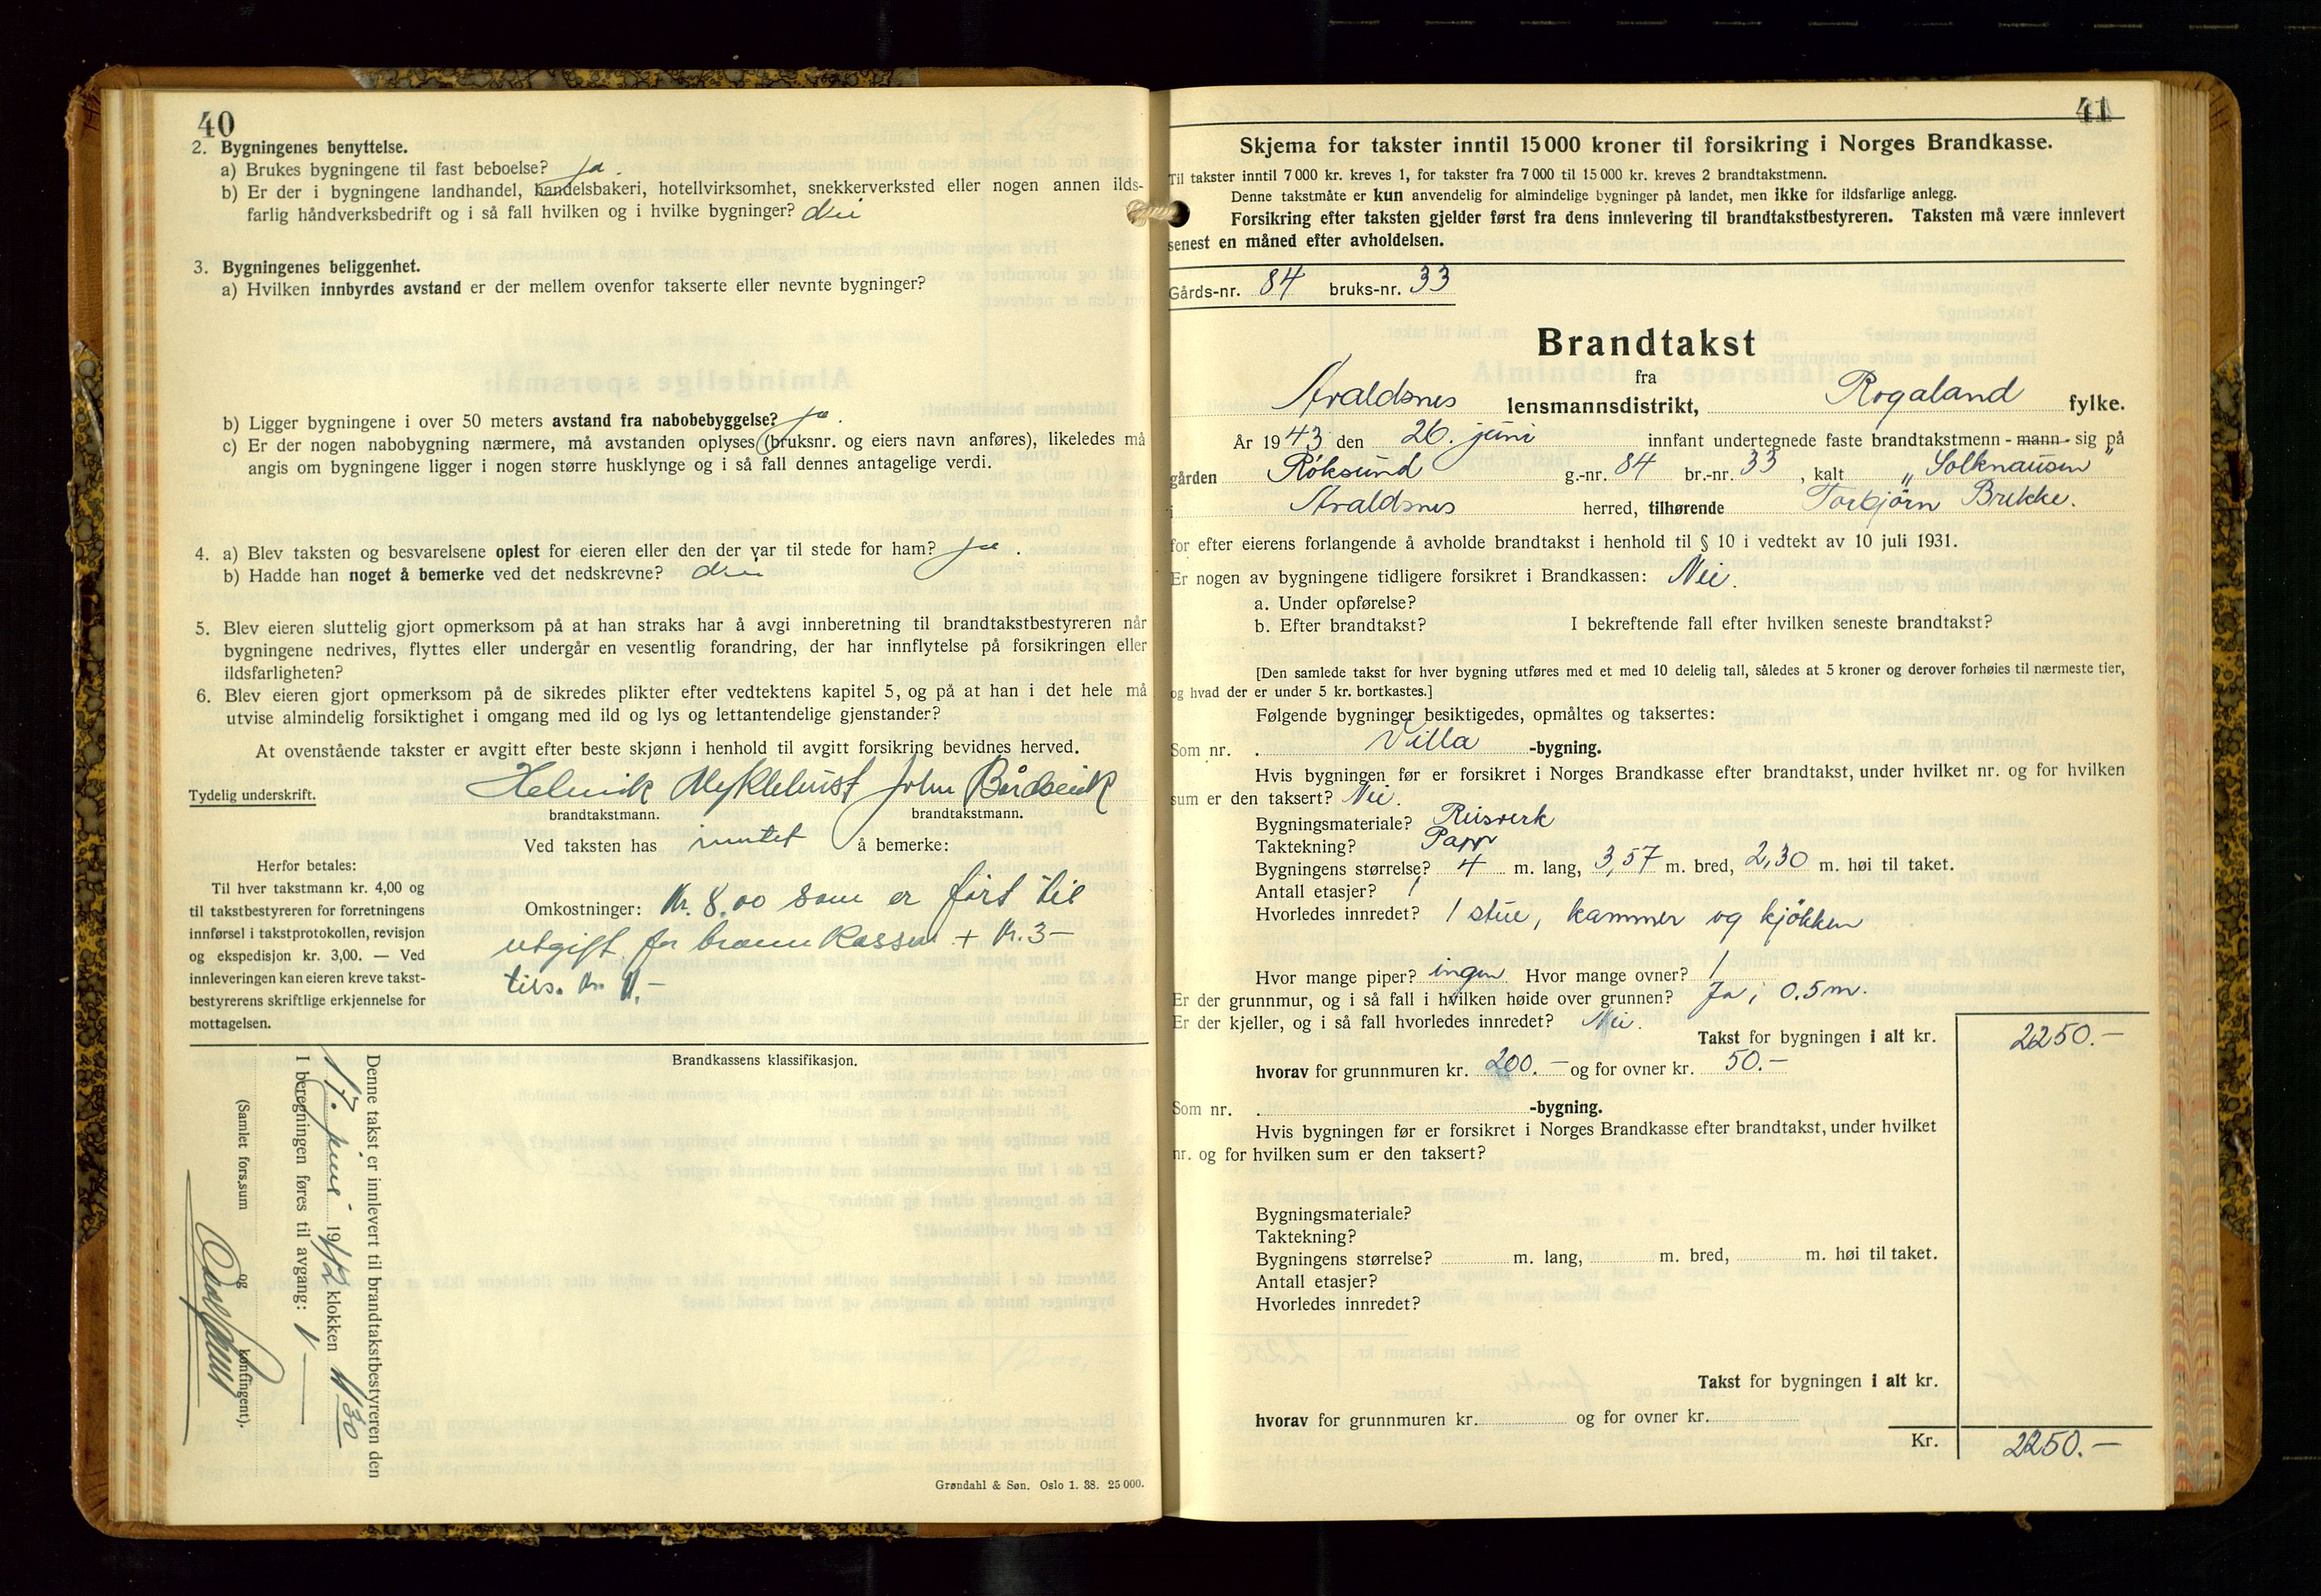 40
2. Bygningenes benyttelse.
a) Brukes bygningene til fast beboelse? ja.
b) Er der i bygningene landhandel, handelsbakeri, hotellvirksomhet, snekkerverksted eller nogen annen ilds-
farlig håndverksbedrift og i så fall hvilken og i hvilke bygninger? Nei
3. Bygningenes beliggenhet.
a) Hvilken innbyrdes avstand er der mellem ovenfor takserte eller nevnte bygninger?
b) Ligger bygningene i over 50 meters avstand fra nabobebyggelse? ja.
c) Er der nogen nabobygning nærmere, må avstanden oplyses (bruksnr. og eiers navn anføres), likeledes må
angis om bygningene ligger i nogen større husklynge og i så fall dennes antagelige verdi.
4. a) Blev taksten og besvarelsene oplest for eieren eller den der var til stede for ham? ja.
b) Hadde han noget å bemerke ved det nedskrevne? Nei
5. Blev eieren sluttelig gjort opmerksom på at han straks har å avgi innberetning til brandtakstbestyreren når
bygningene nedrives, flyttes eller undergår en vesentlig forandring, der har innflytelse på forsikringen eller
ildsfarligheten?
6. Blev eieren gjort opmerksom på de sikredes plikter efter vedtektens kapitel 5, og på at han i det hele må
utvise almindelig forsiktighet i omgang med ild og lys og lettantendelige gjenstander?
At ovenstående takster er avgitt efter beste skjønn i henhold til avgitt forsikring bevidnes herved.
Tydelig underskrift. Helmik Myklebust John Bårdsevik
brandtakstmann. brandtakstmann.
Ved taksten has intet å bemerke:
Herfor betales:
Til hver takstmann kr. 4,00 og
til takstbestyreren for forretningens
innførsel i takstprotokollen, revisjon
og ekspedisjon kr. 3,00. — Ved
innleveringen kan eieren kreve takst-
bestyrerens skriftlige erkjennelse for
mottagelsen.
Omkostninger: Kr. 8,00 som er ført til
utgift for brannkassen + kr. 3-
tils. kr. 11.-
Brandkassens klassifikasjon.
Denne takst er innlevert til brandtakstbestyreren den
17. juni 1942 klokken 11 30
I beregningen føres til avgang:
(Samlet fors.sum og kontingent).
Grøndahl & Søn. Oslo 1. 38. 25 000.
41
Skjema for takster inntil 15 000 kroner til forsikring i Norges Brandkasse.
Til takster inntil 7 000 kr. kreves 1, for takster fra 7 000 til 15 000 kr. kreves 2 brandtakstmenn.
Denne takstmåte er kun anvendelig for almindelige bygninger på landet, men ikke for ildsfarlige anlegg.
Forsikring efter taksten gjelder først fra dens innlevering til brandtakstbestyreren. Taksten må være innlevert
senest en måned efter avholdelsen.
Gårds-nr. 84 bruks-nr. 33
Brandtakst
fra
Avaldsnes lensmannsdistrikt, Rogaland fylke.
År 1943 den 26. juni innfant undertegnede faste brandtakstmenn - mann - sig på
gården Röksund g.-nr. 84 br.-nr. 33, kalt „Solknausen"
i Avaldsnes herred, tilhørende Torbjörn Brekke.
for efter eierens forlangende å avholde brandtakst i henhold til § 10 i vedtekt av 10 juli 1931.
Er nogen av bygningene tidligere forsikret i Brandkassen: Nei.
a. Under opførelse?
b. Efter brandtakst? I bekreftende fall efter hvilken seneste brandtakst?
[Den samlede takst for hver bygning utføres med et med 10 delelig tall, således at 5 kroner og derover forhøies til nærmeste tier,
og hvad der er under 5 kr. bortkastes.]
Følgende bygninger besiktigedes, opmåltes og taksertes:
Som nr. . Villa -bygning.
Hvis bygningen før er forsikret i Norges Brandkasse efter brandtakst, under hvilket nr. og for hvilken
sum er den taksert? Nei.
Bygningsmateriale? Reisverk
Taktekning? Papp
Bygningens størrelse? 4 m. lang, 3,57 m. bred, 2,30 m. høi til taket.
Antall etasjer? 1
Hvorledes innredet? 1 stue, kammer og kjökken
Hvor mange piper? ingen Hvor mange ovner? 1
Er der grunnmur, og i så fall i hvilken høide over grunnen? Ja, 0.5 m.
Er der kjeller, og i så fall hvorledes innredet? Nei.
Takst for bygningen i alt kr. 2250.—
hvorav for grunnmuren kr. 200.— og for ovner kr. 50.—
Som nr. . -bygning.
Hvis bygningen før er forsikret i Norges Brandkasse efter brandtakst, under hvilket
nr. og for hvilken sum er den taksert?
Bygningsmateriale?
Taktekning?
Bygningens størrelse? m. lang, m. bred, m. høi til taket.
Antall etasjer?
Hvorledes innredet?
Takst for bygningen i alt kr.
hvorav for grunnmuren kr. og for ovner kr.
Kr. 2250.—